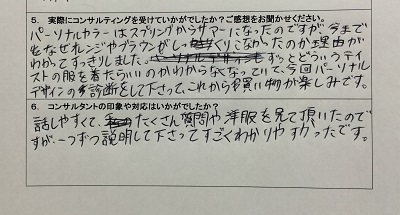 5. 実際にコンサルティングを受けていかがでしたか？ご感想をお聞かせください。
パーソナルカラーはスプリングからサマーになったのですが、今まで
なぜオレンジやブラウンがしっくりこなかったのか理由が
わかってすっきりしました。ずっとどういうテイ
ストの服を着たらいいのかわからなくなっていて、今回パーソナル
デザインの診断をして下さって、これから買い物が楽しみです。
6. コンサルタントの印象や対応はいかがでしたか？
話しやすくて、たくさん質問や洋服を見て頂いたので
すが、一つずつ説明して下さってすごくわかりやすかったです。